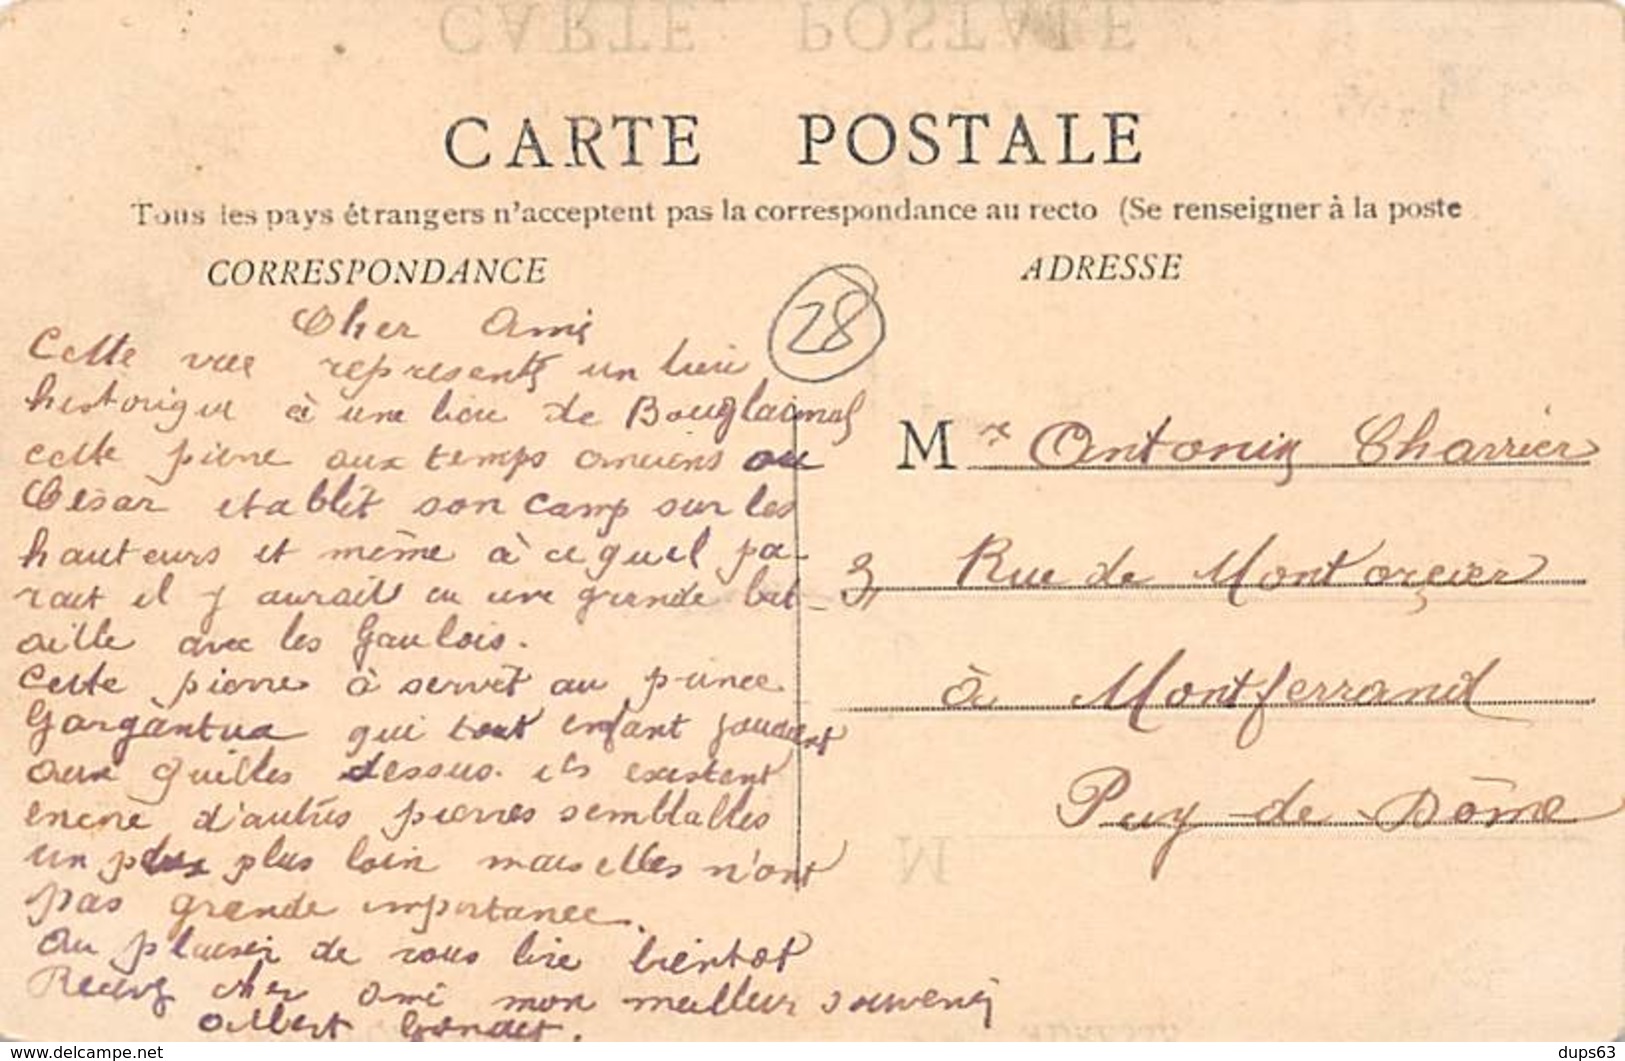 CARTE POSTALE
Tous les pays étrangers n'acceptent pas la correspondance au recto (Se renseigner à la poste
CORRESPONDANCE
ADRESSE
28
Cher Ami
Cette vue represente un lieu
historique à une lieu de Bouglainval
cette pierre aux temps anciens ou
César etablit son camp sur les
hauteurs et même à ce quel pa-
rait il y aurait eu une grande bat-
aille avec les Gaulois.
Cette pierre à servit au prince
Gargantua qui tout enfant jouaient
aux quilles dessus. ils existent
encore d'autres pierres semblables
un peu plus loin mais elles n'ont
pas grande importance.
Au plaisir de vous lire bientot
Recevez cher ami mon meilleur souvenir
Albert
Mr Antonin Charrier
3, Rue de Montorcier
à Montferrand
Puy-de-Dôme
www.delcampe.net
dups63